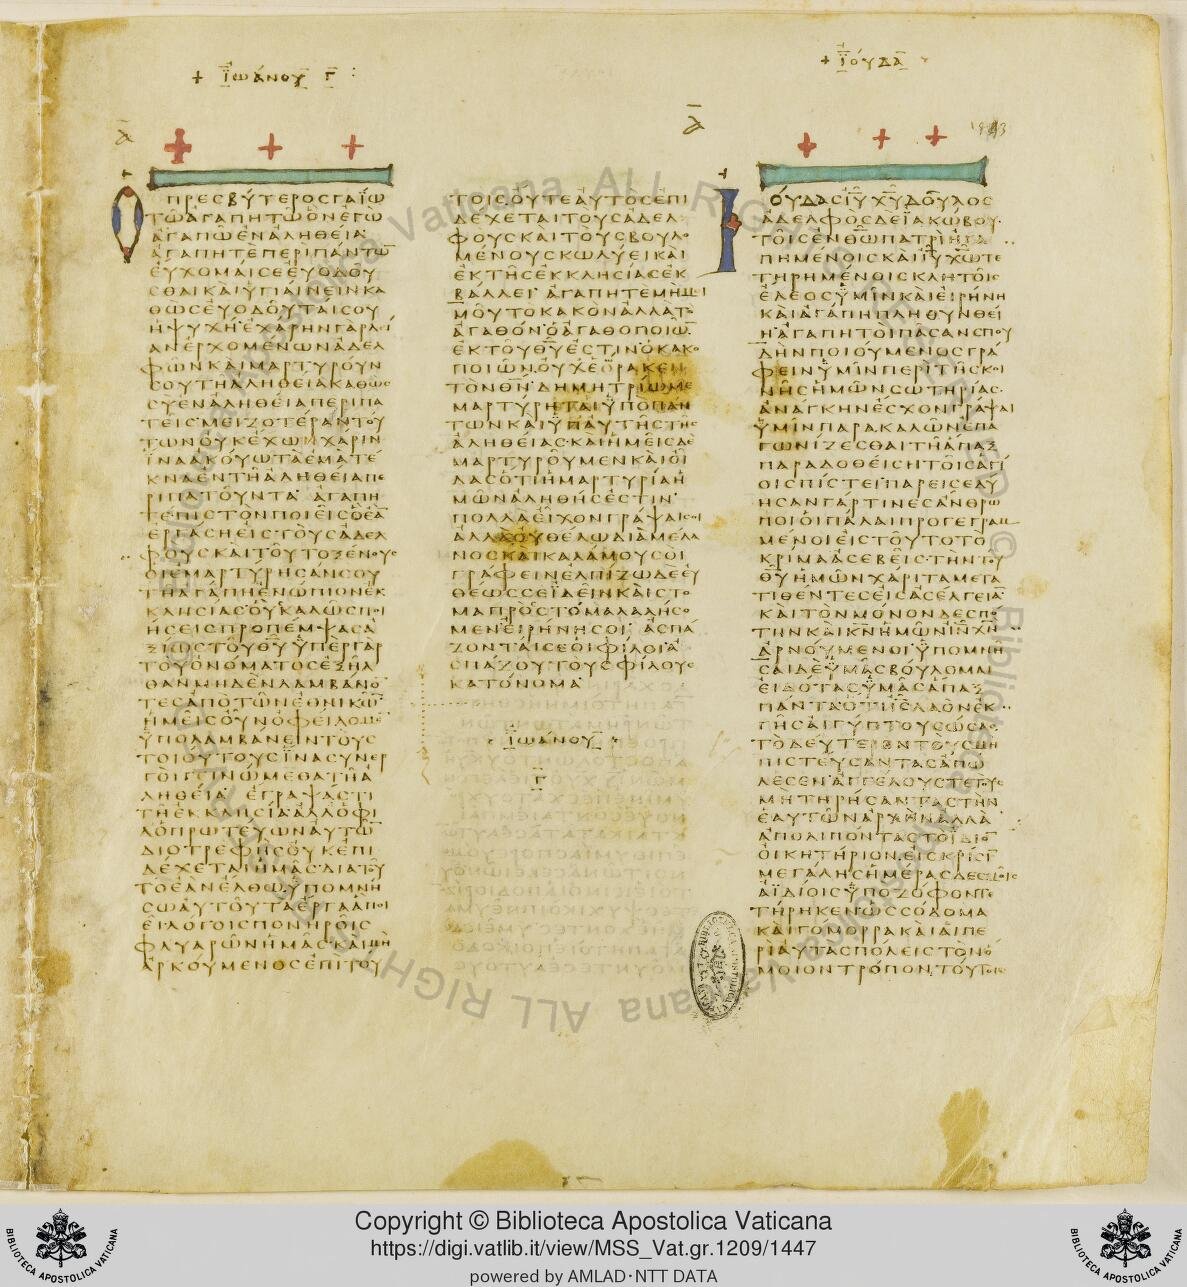 + ΪΩΆΝΟΥ Γ
+ ΪΟΎΔΑ
Ὁ
ΠΡΕΣΒΥΤΕΡΟΣΓΑΪΩ
ΤΩΑΓΑΠΗΤΩΟΝΕΓΩ
ΑΓΑΠΩΕΝΑΛΗΘΕΙΑ
ΑΓΑΠΗΤΕΠΕΡΙΠΑΝΤΩ̅
ΕΥΧΟΜΑΙΣΕΕΥΟΔΟΥ
ΣΘΑΙΚΑΙΥΓΙΑΙΝΕΙΝΚΑ
ΘΩΣΕΥΟΔΟΥΤΑΙΣΟΥ
ΗΨΥΧΗΕΧΑΡΗΝΓΑΡΛΕΙ
ΑΝΕΡΧΟΜΕΝΩΝΑΔΕΛ
ΦΩΝΚΑΙΜΑΡΤΥΡΟΥΝ
ΣΟΥΤΗΑΛΗΘΕΙΑΚΑΘΩΣ
ΣΥΕΝΑΛΗΘΕΙΑΠΕΡΙΠΑ
ΤΕΙΣΜΕΙΖΟΤΕΡΑΝΤΟΥ
ΤΩΝΟΥΚΕΧΩΧΑΡΙΝ
ΙΝΑΑΚΟΥΩΤΑΕΜΑΤΕ
ΚΝΑΕΝΤΗΑΛΗΘΕΙΑΠΕ
ΡΙΠΑΤΟΥΝΤΑ ΑΓΑΠΗ
ΤΕΠΙΣΤΟΝΠΟΙΕΙΣΟΕΑ̅
ΕΡΓΑΣΗΕΙΣΤΟΥΣΑΔΕΛ
ΦΟΥΣΚΑΙΤΟΥΤΟΞΕΝΟΥΣ
ΟΙΕΜΑΡΤΥΡΗΣΑΝΣΟΥ
ΤΗΑΓΑΠΗΕΝΩΠΙΟΝΕΚ
ΚΛΗΣΙΑΣΟΥΣΚΑΛΩΣΠΟΙ
ΗΣΕΙΣΠΡΟΠΕΜΨΑΣΑ
ΞΙΩΣΤΟΥΘΥ̅ΥΠΕΡΓΑΡ
ΤΟΥΟΝΟΜΑΤΟΣΕΞΗΛ
ΘΑΝΜΗΔΕΝΛΑΜΒΑΝΟ̅
ΤΕΣΑΠΟΤΩΝΕΘΝΙΚΩ̅
ΗΜΕΙΣΟΥΝΟΦΕΙΛΟΜΕ̅
ΥΠΟΛΑΜΒΑΝΕΙΝΤΟΥΣ
ΤΟΙΟΥΤΟΥΣΙΝΑΣΥΝΕΡ
ΓΟΙΓΕΙΝΩΜΕΘΑΤΗΑ
ΛΗΘΕΙΑ ΕΓΡΑΨΑΣΤΙ
ΤΗΕΚΚΛΗΣΙΑΑΛΛΟΦΙ
ΛΟΠΡΩΤΕΥΩΝΑΥΤΩ̅
ΔΙΟΤΡΕΦΗΣΟΥΚΕΠΙ
ΔΕΧΕΤΑΙΗΜΑΣΔΙΑΤΟΥ
ΤΟΕΑΝΕΛΘΩΥΠΟΜΝΗ
ΣΩΑΥΤΟΥΤΑΕΡΓΑΑΠΟΙ
ΕΙΛΟΓΟΙΣΠΟΝΗΡΟΙΣ
ΦΛΥΑΡΩΝΗΜΑΣΚΑΙΜΗ
ΑΡΚΟΥΜΕΝΟΣΕΠΙΤΟΥ
ΤΟΙΣΟΥΤΕΑΥΤΟΣΕΠΙ
ΔΕΧΕΤΑΙΤΟΥΣΑΔΕΛ
ΦΟΥΣΚΑΙΤΟΥΣΒΟΥΛΟ
ΜΕΝΟΥΣΚΩΛΥΕΙΚΑΙ
ΕΚΤΗΣΕΚΚΛΗΣΙΑΣΕΚ
ΒΑΛΛΕΙ ΑΓΑΠΗΤΕΜΗΜΙ
ΜΟΥΤΟΚΑΚΟΝΑΛΛΑΤΟ
ΑΓΑΘΟΝΟΑΓΑΘΟΠΟΙΩ̅
ΕΚΤΟΥΘΥ̅ΕΣΤΙΝΟΚΑΚΟ
ΠΟΙΩΝΟΥΧΕΟΡΑΚΕΝ
ΤΟΝΘΝ̅ ΔΗΜΗΤΡΙΩΜΕ
ΜΑΡΤΥΡΗΤΑΙΥΠΟΠΑΝ
ΤΩΝΚΑΙΥΠΑΥΤΗΣΤΗΣ
ΑΛΗΘΕΙΑΣΚΑΙΗΜΕΙΣΔΕ
ΜΑΡΤΥΡΟΥΜΕΝΚΑΙΟΙ
ΔΑΣΟΤΙΗΜΑΡΤΥΡΙΑΗ
ΜΩΝΑΛΗΘΗΣΕΣΤΙΝ
ΠΟΛΛΑΕΙΧΟΝΓΡΑΨΑΙΣΟΙ
ΑΛΛΑΟΥΘΕΛΩΔΙΑΜΕΛΑ
ΝΟΣΚΑΙΚΑΛΑΜΟΥΣΟΙ
ΓΡΑΦΕΙΝΕΛΠΙΖΩΔΕΕΥ
ΘΕΩΣΣΕΙΔΕΙΝΚΑΙΣΤΟ
ΜΑΠΡΟΣΤΟΜΑΛΑΛΗΣΟ
ΜΕΝΕΙΡΗΝΗΣΟΙ ΑΣΠΑ
ΖΟΝΤΑΙΣΕΟΙΦΙΛΟΙΑ
ΣΠΑΖΟΥΤΟΥΣΦΙΛΟΥΣ
ΚΑΤΟΝΟΜΑ
ΪΩΑΝΟΥ
Γ
Ι
ΟΥΔΑΣΙΥ̅ΧΥ̅ΔΟΥΛΟΣ
ΑΔΕΛΦΟΣΔΕΪΑΚΩΒΟΥ
ΤΟΙΣΕΝΘΩ̅ΠΑΤΡΙΗΓΑ
ΠΗΜΕΝΟΙΣΚΑΙΙΥ̅ΧΩ̅ΤΕ
ΤΗΡΗΜΕΝΟΙΣΚΛΗΤΟΙΣ
ΕΛΕΟΣΥΜΙΝΚΑΙΕΙΡΗΝΗ
ΚΑΙΑΓΑΠΗΠΛΗΘΥΝΘΕΙ
Η ΑΓΑΠΗΤΟΙΠΑΣΑΝΣΠΟΥ
ΔΗΝΠΟΙΟΥΜΕΝΟΣΓΡΑ
ΦΕΙΝΥΜΙΝΠΕΡΙΤΗΣΚΟΙ
ΝΗΣΗΜΩΝΣΩΤΗΡΙΑΣ
ΑΝΑΓΚΗΝΕΣΧΟΝΓΡΑΨΑΙ
ΥΜΙΝΠΑΡΑΚΑΛΩΝΕΠΑ
ΓΩΝΙΖΕΣΘΑΙΤΗΑΠΑΞ
ΠΑΡΑΔΟΘΕΙΣΗΤΟΙΣΑΓΙ
ΟΙΣΠΙΣΤΕΙΠΑΡΕΙΣΕΔΥ
ΗΣΑΝΓΑΡΤΙΝΕΣΑΝΘΡΩ
ΠΟΙΟΙΠΑΛΑΙΠΡΟΓΕΓΡΑΜ
ΜΕΝΟΙΕΙΣΤΟΥΤΟΤΟ
ΚΡΙΜΑΑΣΕΒΕΙΣΤΗΝΤΟΥ
ΘΥ̅ΗΜΩΝΧΑΡΙΤΑΜΕΤΑ
ΤΙΘΕΝΤΕΣΕΙΣΑΣΕΛΓΕΙΑ̅
ΚΑΙΤΟΝΜΟΝΟΝΔΕΣΠΟ
ΤΗΝΚΑΙΚΝ̅ΗΜΩΝΙΝ̅ΧΝ̅
ΑΡΝΟΥΜΕΝΟΙΥΠΟΜΝΗ
ΣΑΙΔΕΥΜΑΣΒΟΥΛΟΜΑΙ
ΕΙΔΟΤΑΣΥΜΑΣΑΠΑΞ
ΠΑΝΤΑΟΤΙΙΣΛΑΟΝΕΚ
ΓΗΣΑΙΓΥΠΤΟΥΣΩΣΑΣ
ΤΟΔΕΥΤΕΡΟΝΤΟΥΣΜΗ
ΠΙΣΤΕΥΣΑΝΤΑΣΑΠΩ
ΛΕΣΕΝΑΓΓΕΛΟΥΣΤΕΤΟΥΣ
ΜΗΤΗΡΗΣΑΝΤΑΣΤΗΝ
ΕΑΥΤΩΝΑΡΧΗΝΑΛΛΑ
ΑΠΟΛΙΠΟΝΤΑΣΤΟΙΔΙΟ̅
ΟΙΚΗΤΗΡΙΟΝΕΙΣΚΡΙΣΙ̅
ΜΕΓΑΛΗΣΗΜΕΡΑΣΔΕΣΜΟΙΣ
ΑΪΔΙΟΙΣΥΠΟΖΟΦΟΝΤΕ
ΤΗΡΗΚΕΝΩΣΣΟΔΟΜΑ
ΚΑΙΓΟΜΟΡΡΑΚΑΙΑΙΠΕ
ΡΙΑΥΤΑΣΠΟΛΕΙΣΤΟΝΟ
ΜΟΙΟΝΤΡΟΠΟΝΤΟΥΤΟΙΣ
Copyright © Biblioteca Apostolica Vaticana
https://digi.vatlib.it/view/MSS_Vat.gr.1209/1447
powered by AMLAD·NTT DATA